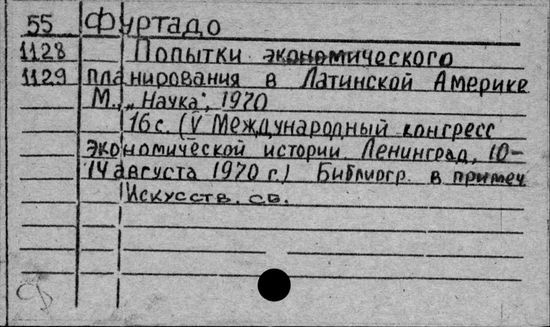 55 Фуртадо
1128 Попытки экономического
1129 планирования в Латинской Америке
М., „Наука“, 1970
16 с. (V Международный конгресс
экономической истории. Ленинград, 10-
14 августа 1970 г.) Библиогр. в примеч
Искусств. св.